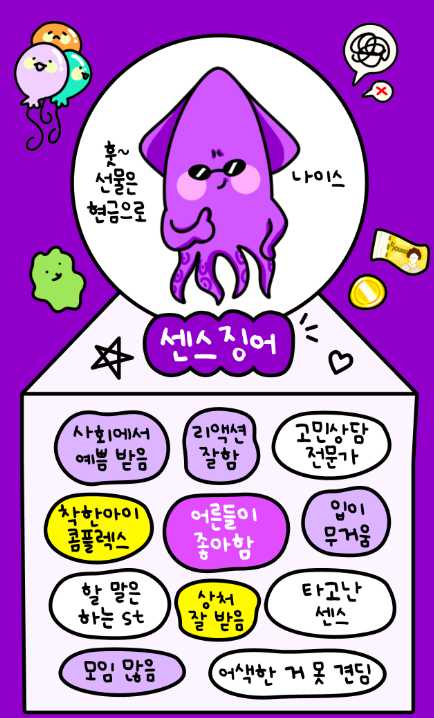 훗~
선물은
현금으로
나이스
센스징어
사회에서
예쁨 받음
리액션
잘함
고민상담
전문가
착한아이
콤플렉스
어른들이
좋아함
입이
무거움
할 말은
하는 st
상처
잘 받음
타고난
센스
모임 많음
어색한 거 못 견딤